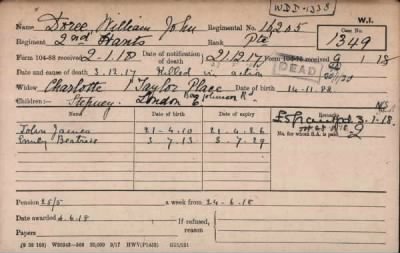 WDD-1338
W.I.
Name Doree, William John Regimental No. 16205
Case No.
1349
Regiment 2nd Hants Rank Pte
Form 104-88 received 2-1-18 Date of notification of death 21.12.17 Form 104-76 received 9 1 18
Date and cause of death 3.12.17 Killed in action
DEAD
Widow Charlotte Taylor Place Date of birth 14-11-82
Children:— Stepney London E Johnson Rd
Date of birth
Date of expiry
Remarks
No. for whom S.A. is paid 2
John James 21-4-10 21-4-26
Emily Beatrice 3-7-13 3-7-29
Pension 25/5 a week from 24-6-18
Date awarded 6.6.18 If refused, reason
Papers